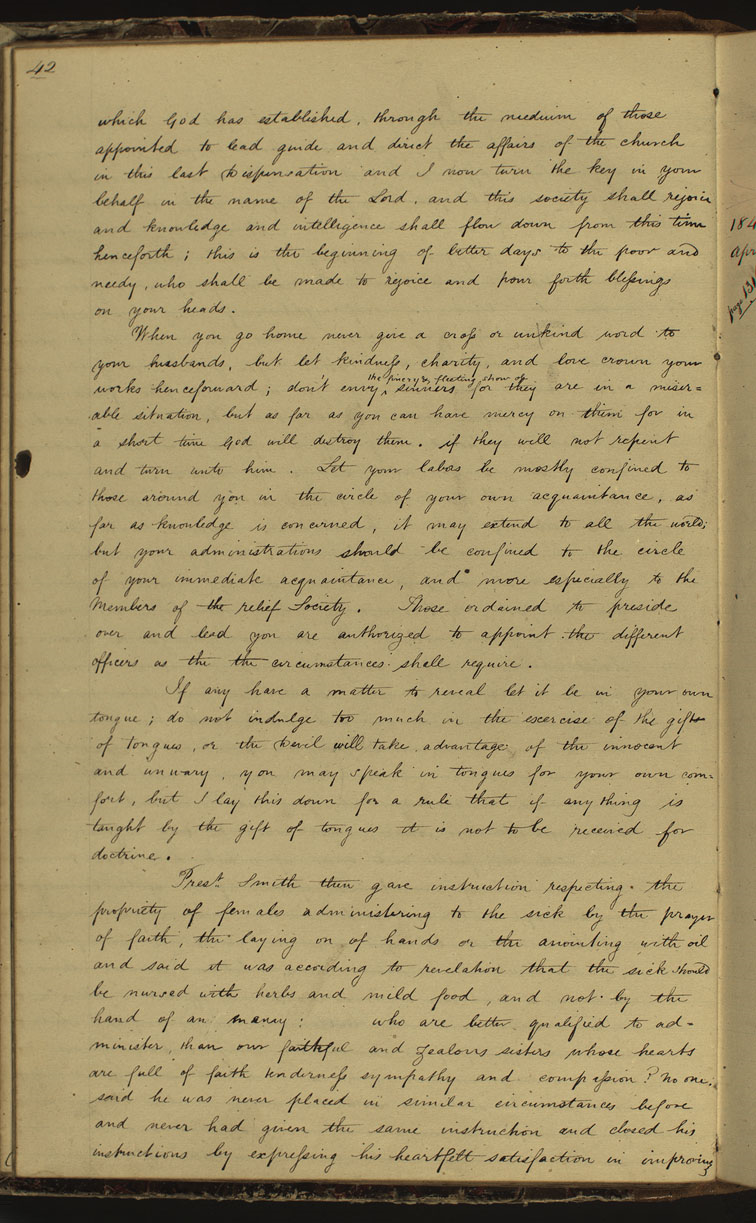 42
which God has established, through the medium of those
appointed to lead guide and direct the affairs of the church
in this last Dispensation and I now turn the key in your
behalf in the name of the Lord, and this society shall rejoice
and knowledge and intelligence shall flow down from this time
henceforth; this is the beginning of better days to the poor and
needy, who shall be made to rejoice and pour forth blessings
on your heads.
When you go home never give a cross or unkind word to
your husbands, but let kindness, charity, and love crown your
the finery & fleeting show of
works henceforward; don't envy ^ sinners for they are in a miser=
able situation, but as far as you can have mercy on them for in
a short time God will destroy them. if they will not repent
and turn unto him. Let your labas be mostly confined to
those around you in the circle of your own acquaintance, as
far as knowledge is concerned, it may extend to all the world;
but your administrations should be confined to the circle
of your immediate acquaintance, and more especially to the
Members of the relief Society. Those ordained to preside
over and lead you are authorized to appoint the different
officers as the the circumstances shall require.
If any have a matter to reveal let it be in your own
tongue; do not indulge too much in the exercise of the gift
of tongues, or the Devil will take advantage of the innocent
and unwary, you may speak in tongues for your own com=
fort, but I lay this down for a rule that if any thing is
taught by the gift of tongues it is not to be received for
doctrine.
Prest. Smith then gave instruction respecting the
propriety of females administering to the sick by the prayer
of faith, the laying on of hands or the anointing with oil
and said it was according to revelation that the sick should
be nursed with herbs and mild food, and not by the
hand of an : who are better qualified to ad=
minister than our faithful and zealous sisters whose hearts
are full of faith tenderness sympathy and compassion? no one.
said he was never placed in similar circumstances before
and never had given the same instruction and closed his
instructions by expressing his heartfelt satisfaction in improving
184
Apr
page 131